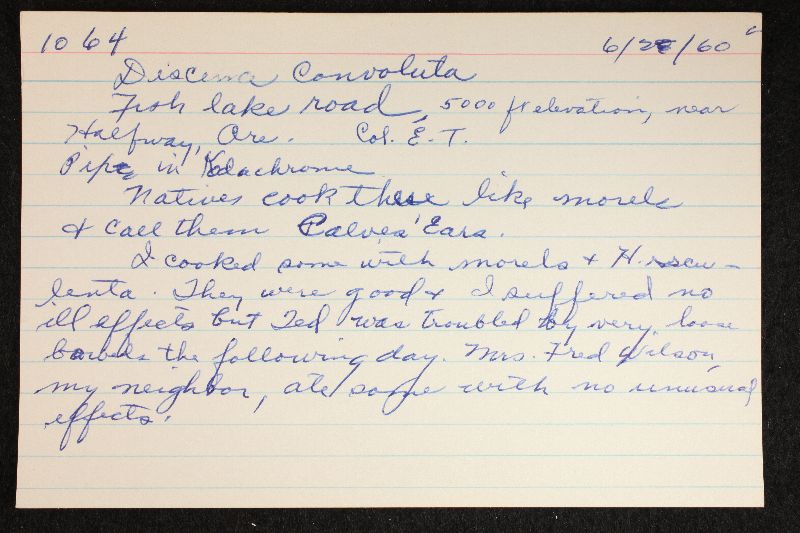 1064 6/28/60
Discina Convoluta
Fish lake road, 5000 ft elevation, near
Halfway, Ore. Col. E. T.
in Kodachrome
Natives cook these like morels
& call them Calves' Ears.
I cooked some with morels & H. escu-
lenta. They were good & I suffered no
ill effects but Ted was troubled by very loose
bowels the following day. Mrs. Fred Wilson,
my neighbor, ate some with no unusual
effects.